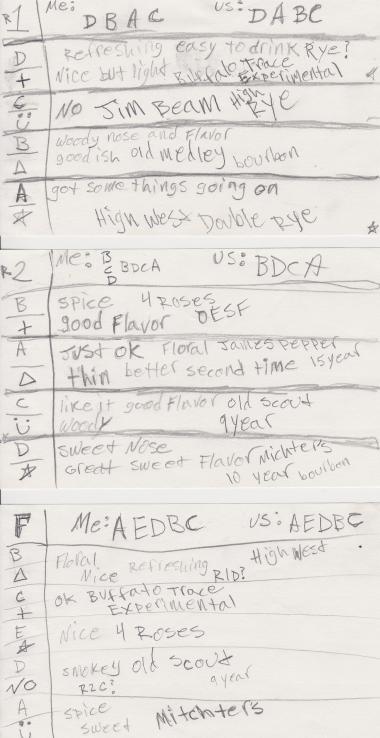 R1 Me: DBAC US: DABC
D Refreshing easy to drink Rye?
+ Nice but light Buffalo Trace Experimental
C NO Jim Beam High Rye
B woody nose and Flavor
Δ goodish old medley bourbon
A got some things going on
☆ High West Double Rye ☆
R2 Me: B C D BDCA US: BDCA
B Spice 4 Roses
+ good Flavor OESF
A Just ok Floral James Pepper
Δ thin better second time 15 year
C like it good Flavor old Scout
Woody 9 year
D Sweet Nose
☆ Great sweet Flavor Michters
10 year bourbon
F Me: AEDBC US: AEDBC
B Floral High West
Δ Nice Refreshing R1D?
C OK Buffalo Trace
+ Experimental
E Nice 4 Roses
☆
D Smokey old Scout
NO R2C? 9 year
A Spice Mitchters
Sweet